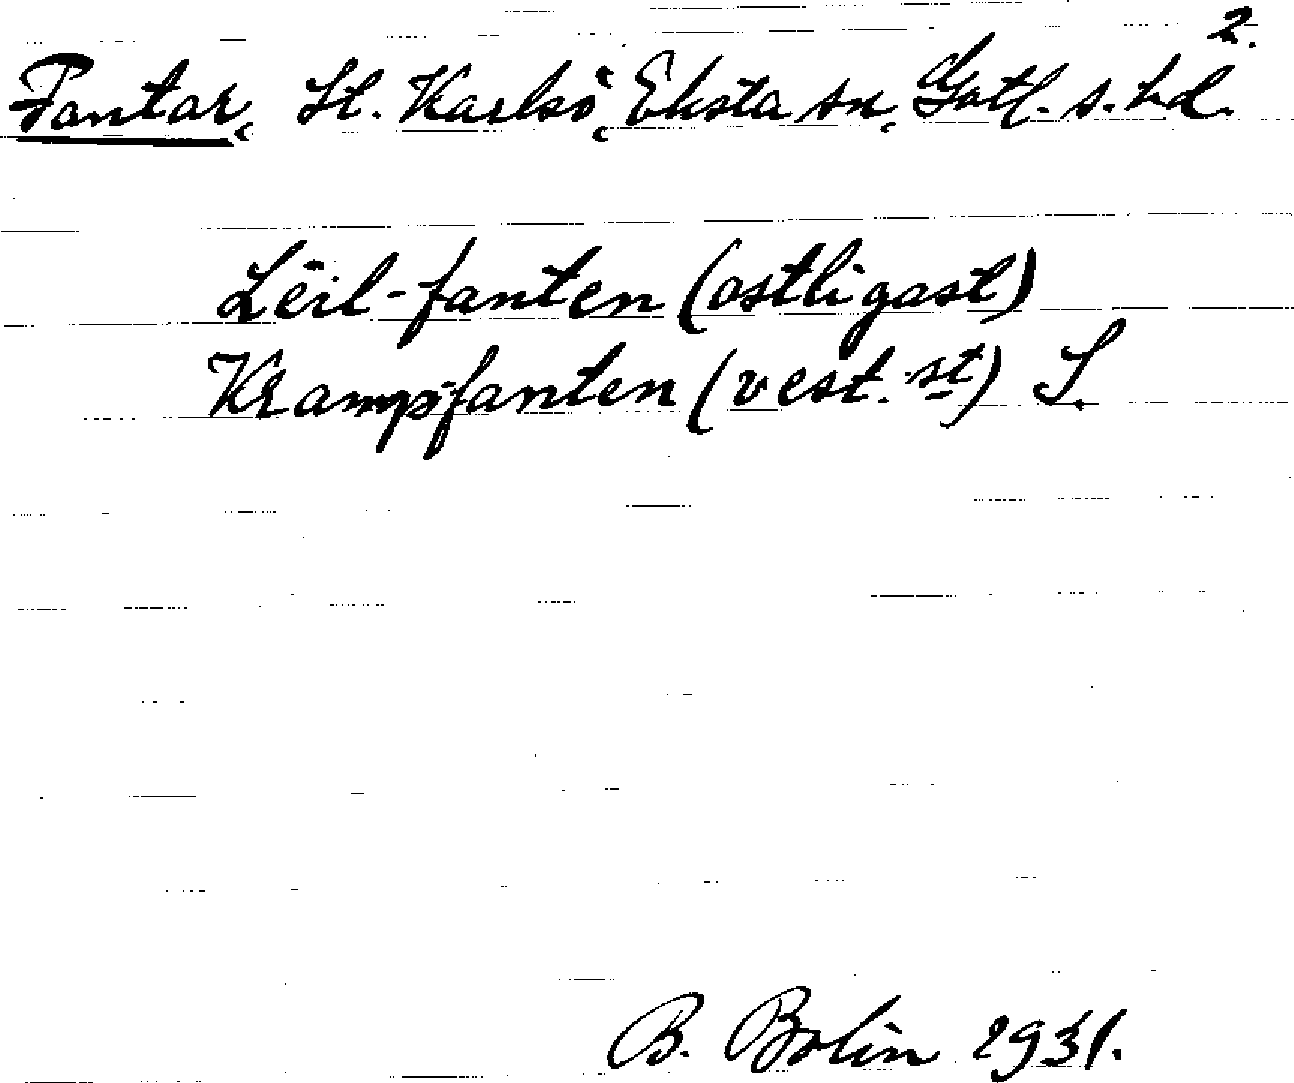 2.
Fantar, St. Karlsö, Eksta sn, Gotl. s. hd.
Lëil-fanten (ostligast)
Krampfanten (vest. st) S.
B. Bolin 1931.